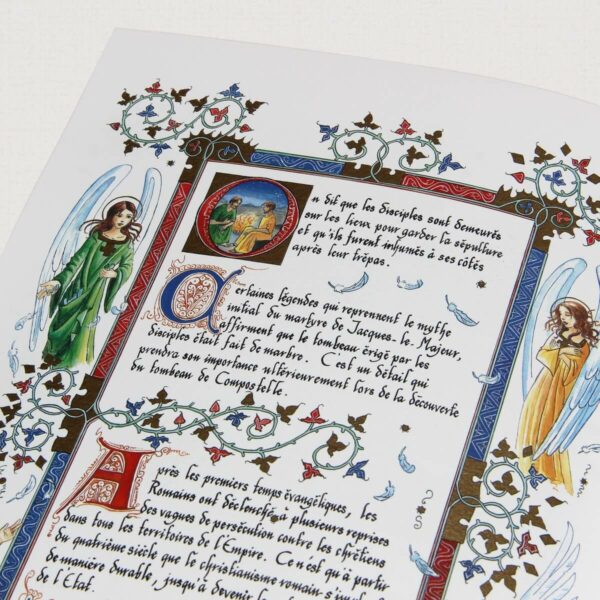 On dit que les disciples sont demeurés
sur les lieux pour garder la sépulture
et qu'ils furent inhumés à ses côtés
après leur trépas.
Certaines légendes qui reprennent le mythe
initial du martyre de Jacques-le-Majeur,
affirment que le tombeau érigé par les
disciples était fait de marbre. C'est un détail qui
prendra son importance ultérieurement lors de la découverte
du tombeau de Compostelle.
Après les premiers temps évangéliques, les
Romains ont déclenché à plusieurs reprises
des vagues de persécution contre les chrétiens
dans tous les territoires de l'Empire. Ce n'est qu'à partir
du quatrième siècle que le christianisme romain s'
de manière durable, jusqu'à devenir la
de l'Etat.